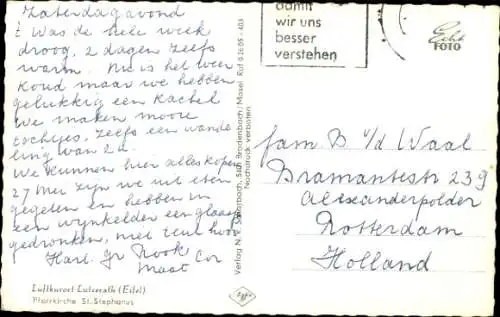 Zaterdagavond
't Was de hele week
droog, 2 dagen zelfs
warm. Nu is het weer
koud maar we hebben
gelukkig een kachel
We maken mooie
tochtjes, zelfs een wande
ling van 2 u.
We kunnen hier alles kopen
27 Mei zijn we uit eten
gegeten en hebben in
een wijnkelder een glaasje
gedronken, niet
Hartl. gr
Cor
Luftkurort Lutzerath (Eifel)
Pfarrkirche St. Stephanus
Verlag N. Brodenbach/Mosel Ruf 63609 - 403
Nachdruck verboten
damit
wir uns
besser
verstehen
Echt
FOTO
fam B v/d Waal
Bramantestr 239
Alexanderpolder
Rotterdam
Holland